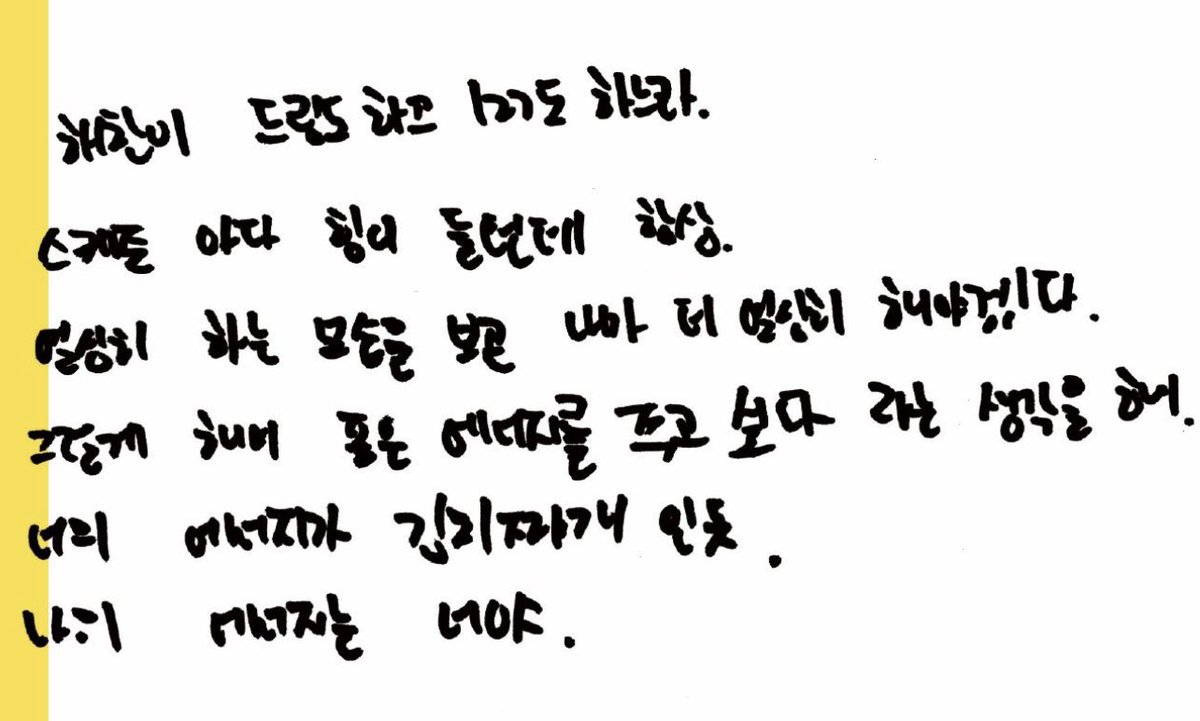 해찬이 드림도 하고 127도 하느라.
스케줄 마다 힘이 들턴데 항상.
열심히 하는 모습을 보곤 내가 더 열심히 해야겠다.
그렇게 해서 좋은 에너지를 주고 보다 라는 생각을 해.
너의 에너지가 김치찌개 인듯.
나의 에너지는 너야.